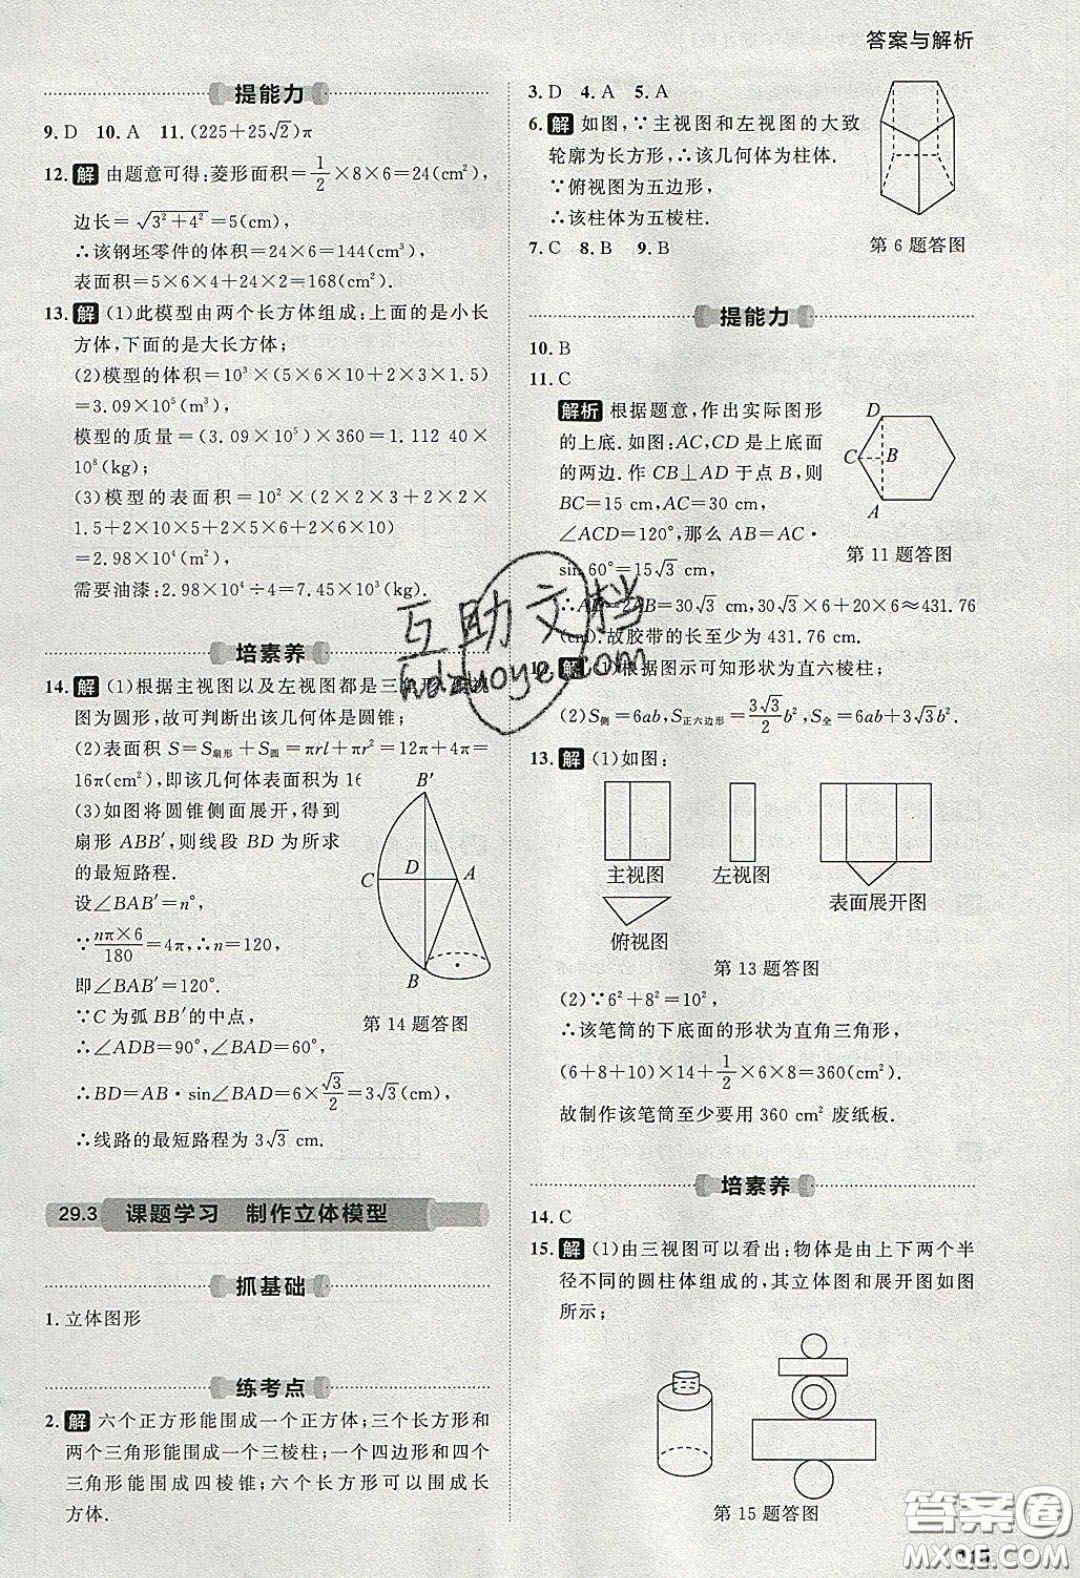 答案与解析
提能力
9. D 10. A 11. (225+25√2)π
12. 解 由题意可得:菱形面积=1/2×8×6=24(cm²),
边长=√(3²+4²)=5(cm),
∴该钢坯零件的体积=24×6=144(cm³),
表面积=5×6×4+24×2=168(cm²).
13. 解 (1)此模型由两个长方体组成:上面的是小长
方体,下面的是大长方体;
(2)模型的体积=10³×(5×6×10+2×3×1.5)
=3.09×10⁵(m³),
模型的质量=(3.09×10⁵)×360=1.112 40×
10⁸(kg);
(3)模型的表面积=10²×(2×2×3+2×2×
1.5+2×10×5+2×5×6+2×6×10)
=2.98×10⁴(m²);
需要油漆:2.98×10⁴÷4=7.45×10³(kg).
培素养
14. 解 (1)根据主视图以及左视图都是三
图为圆形,故可判断出该几何体是圆锥;
(2)表面积 S=S扇形+S圆=πrl+πr²=12π+4π=
16π(cm²),即该几何体表面积为 16
(3)如图将圆锥侧面展开,得到
扇形 ABB′,则线段 BD 为所求
的最短路程.
设∠BAB′=n°,
∵nπ×6/180=4π,∴n=120,
即∠BAB′=120°.
∵C 为弧 BB′的中点,
∴∠ADB=90°,∠BAD=60°,
∴BD=AB·sin∠BAD=6×√3/2=3√3(cm),
∴线路的最短路程为 3√3 cm.
B′
D
C
A
B
第 14 题答图
29.3 课题学习 制作立体模型
抓基础
1. 立体图形
练考点
2. 解 六个正方形能围成一个正方体;三个长方形和
两个三角形能围成一个三棱柱;一个四边形和四个
三角形能围成四棱锥;六个长方形可以围成长
方体.
3. D 4. A 5. A
6. 解 如图,∵主视图和左视图的大致
轮廓为长方形,∴该几何体为柱体.
∵俯视图为五边形,
∴该柱体为五棱柱.
第 6 题答图
7. C 8. B 9. B
提能力
10. B
11. C
解析 根据题意,作出实际图形
的上底. 如图:AC,CD 是上底面
的两边. 作 CB⊥AD 于点 B,则
BC=15 cm,AC=30 cm,
∠ACD=120°,那么 AB=AC·
sin 60°=15√3 cm,
∴AD=2AB=30√3 cm,30√3×6+20×6≈431.76
(cm). 故胶带的长至少为 431.76 cm.
D
C
B
A
第 11 题答图
12. 解 (1)根据图示可知形状为直六棱柱;
(2)S侧=6ab,S正六边形=3√3/2b²,S全=6ab+3√3b².
13. 解 (1)如图:
主视图
左视图
表面展开图
俯视图
第 13 题答图
(2)∵6²+8²=10²,
∴该笔筒的下底面的形状为直角三角形,
(6+8+10)×14+1/2×6×8=360(cm²).
故制作该笔筒至少要用 360 cm² 废纸板.
培素养
14. C
15. 解 (1)由三视图可以看出;物体是由上下两个半
径不同的圆柱体组成的,其立体图和展开图如图
所示;
第 15 题答图
互助文档
hdzuoye.com
答案圈
MXQE.COM